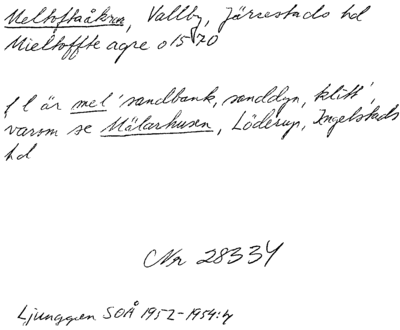 Meltoftaåkrar, Vallby, Järrestads hd
Mieltoffte agre o 1570
f l är mel 'sandbank, sanddyn, klitt',
varom se Mälarhusen, Löderup, Ingelstads
hd
Nr 28334
Ljunggren SOÅ 1952-1954:4